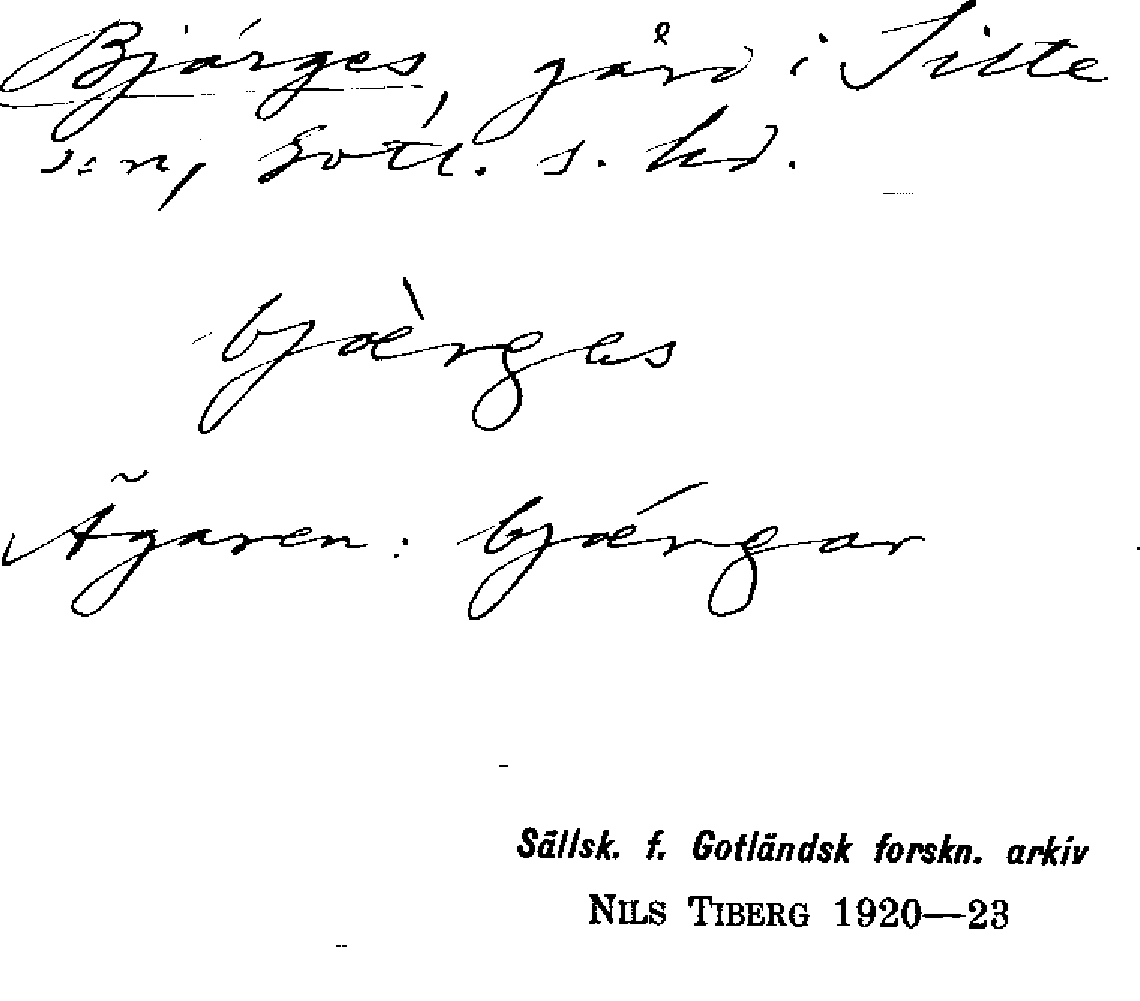 Bjärges, gård i Silte
s:n, Gotl. s. hd.
bjæ̀rges
Ägaren: bjǽrgar
Sällsk. f. Gotländsk forskn. arkiv
NILS TIBERG 1920—23